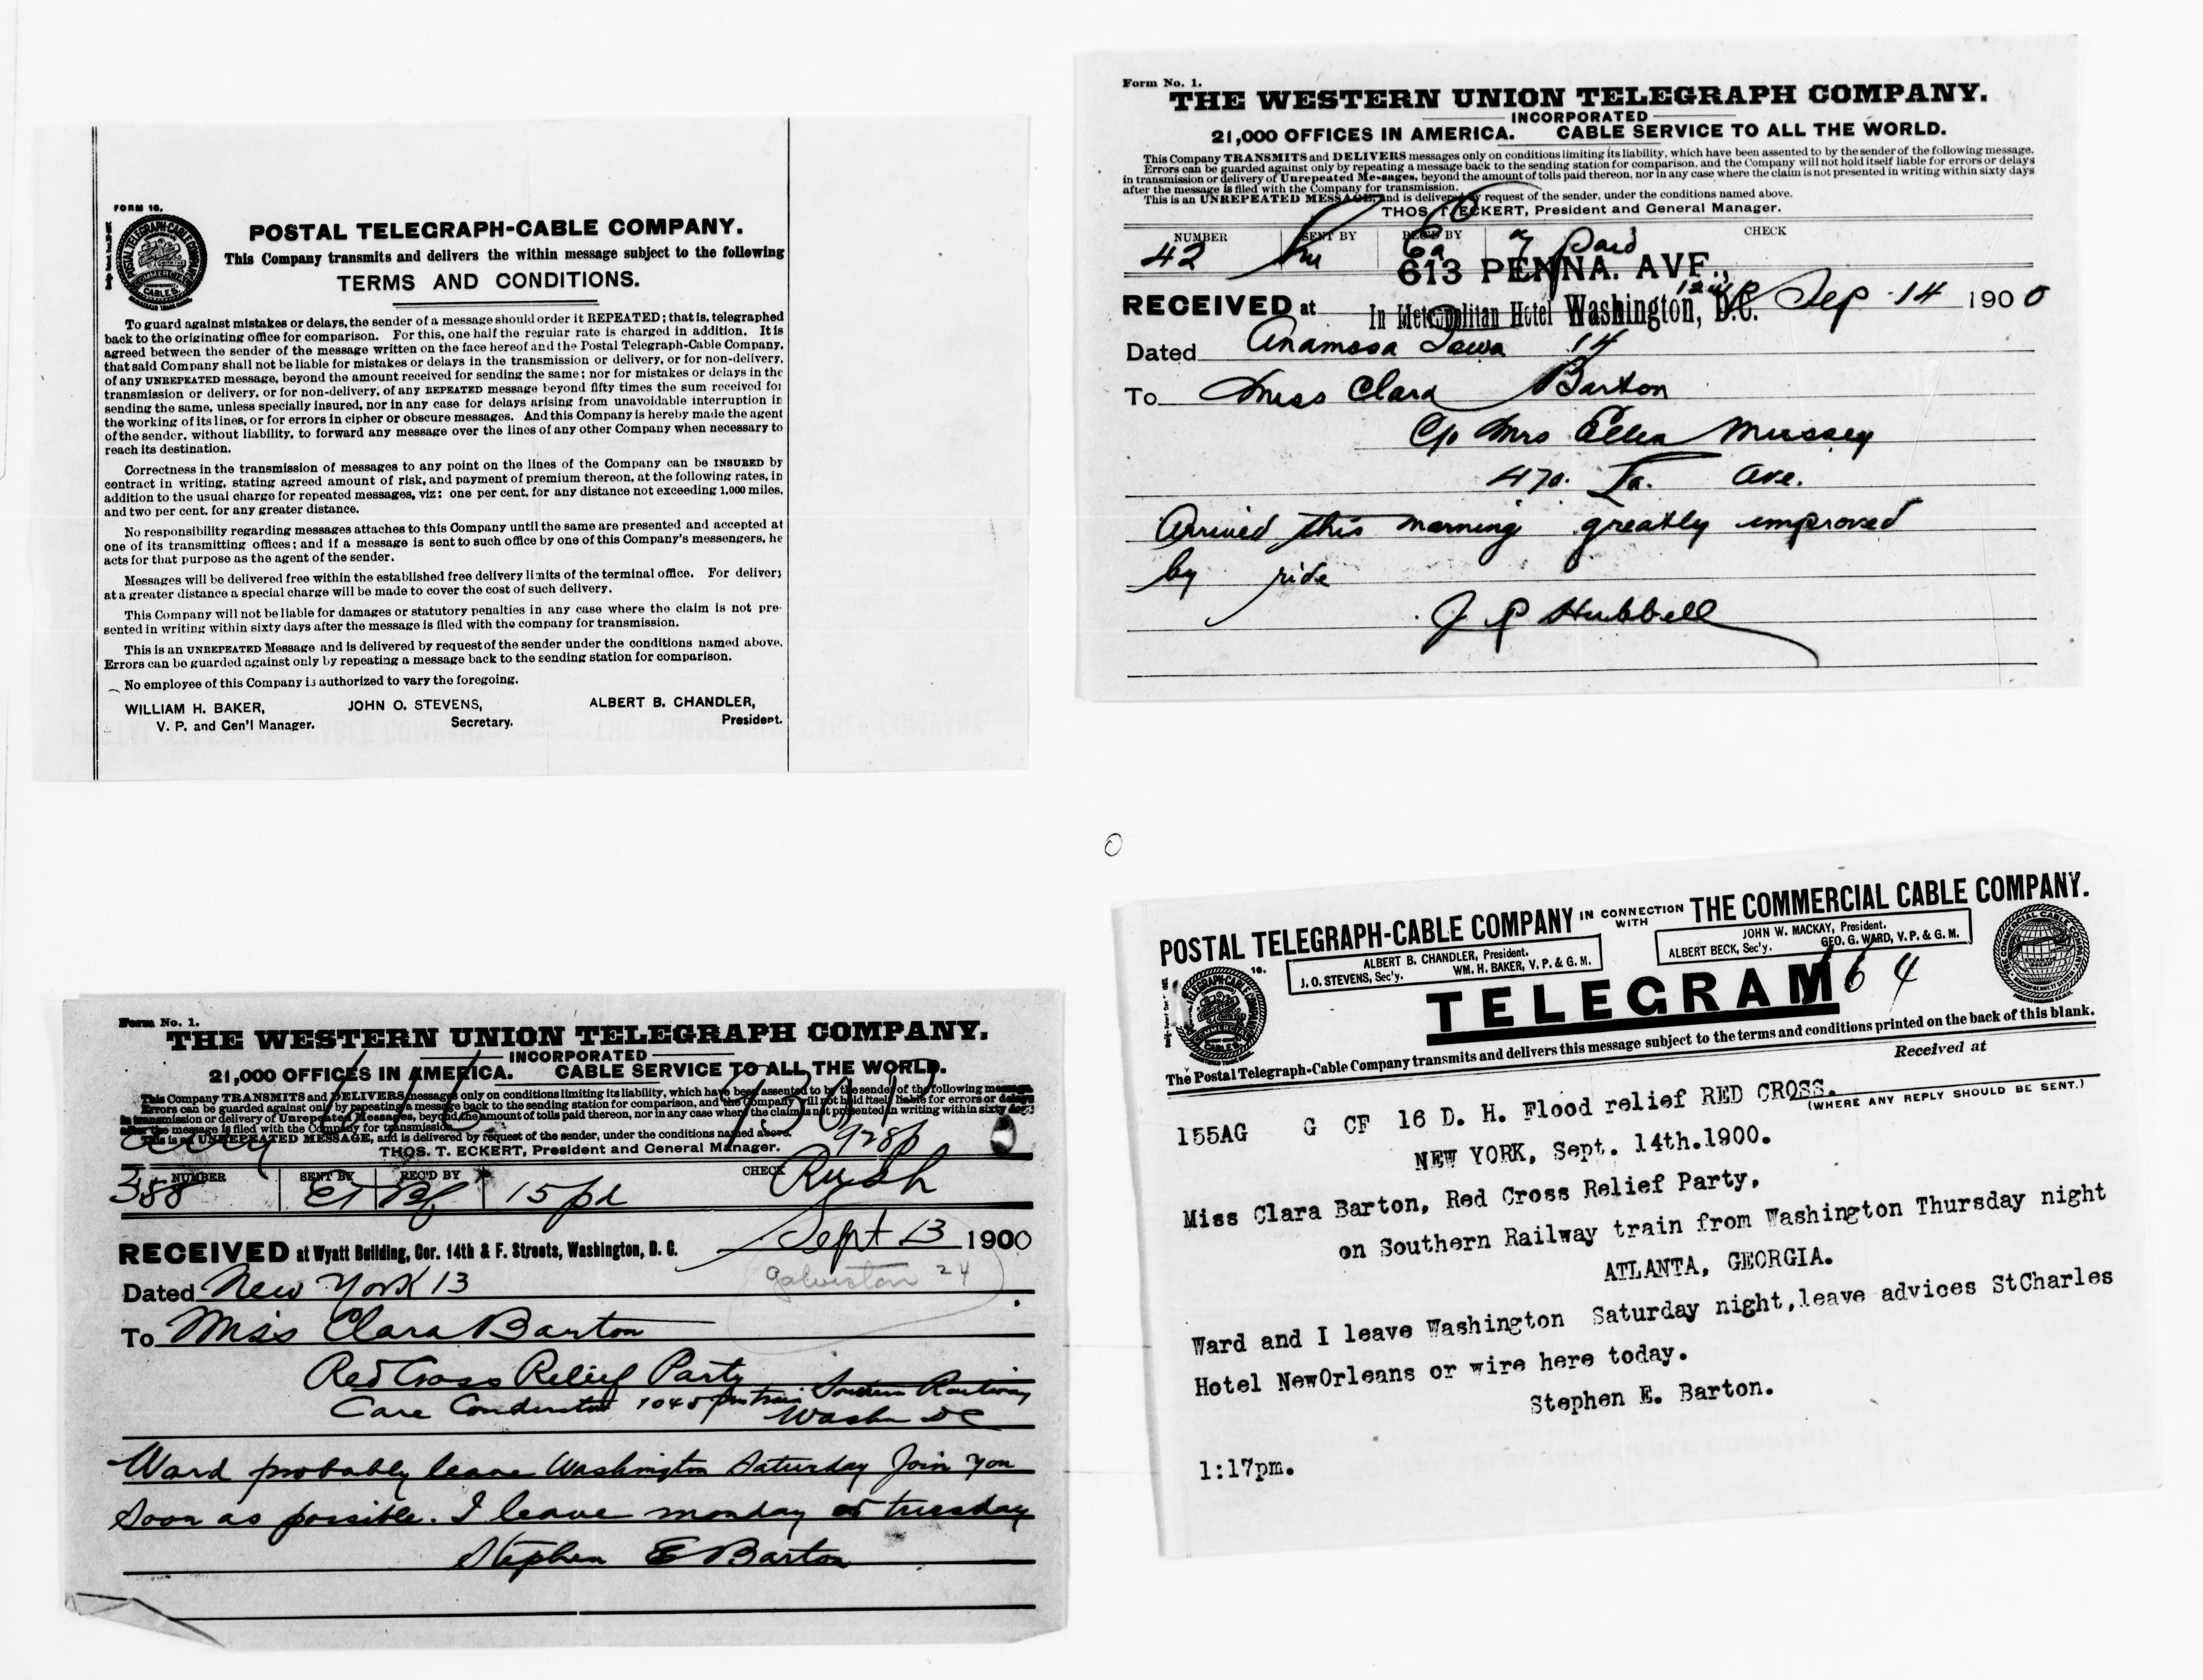 FORM 16.
POSTAL TELEGRAPH-CABLE COMPANY.
This Company transmits and delivers the within message subject to the following
TERMS AND CONDITIONS.
To guard against mistakes or delays, the sender of a message should order it REPEATED; that is, telegraphed
back to the originating office for comparison. For this, one half the regular rate is charged in addition. It is
agreed between the sender of the message written on the face hereof and the Postal Telegraph-Cable Company,
that said Company shall not be liable for mistakes or delays in the transmission or delivery, or for non-delivery,
of any UNREPEATED message, beyond the amount received for sending the same; nor for mistakes or delays in the
transmission or delivery, or for non-delivery, of any REPEATED message beyond fifty times the sum received for
sending the same, unless specially insured, nor in any case for delays arising from unavoidable interruption in
the working of its lines, or for errors in cipher or obscure messages. And this Company is hereby made the agent
of the sender, without liability, to forward any message over the lines of any other Company when necessary to
reach its destination.
Correctness in the transmission of messages to any point on the lines of the Company can be INSURED by
contract in writing, stating agreed amount of risk, and payment of premium thereon, at the following rates, in
addition to the usual charge for repeated messages, viz: one per cent. for any distance not exceeding 1,000 miles,
and two per cent. for any greater distance.
No responsibility regarding messages attaches to this Company until the same are presented and accepted at
one of its transmitting offices; and if a message is sent to such office by one of this Company's messengers, he
acts for that purpose as the agent of the sender.
Messages will be delivered free within the established free delivery limits of the terminal office. For delivery
at a greater distance a special charge will be made to cover the cost of such delivery.
This Company will not be liable for damages or statutory penalties in any case where the claim is not pre-
sented in writing within sixty days after the message is filed with the company for transmission.
This is an UNREPEATED Message and is delivered by request of the sender under the conditions named above.
Errors can be guarded against only by repeating a message back to the sending station for comparison.
No employee of this Company is authorized to vary the foregoing.
WILLIAM H. BAKER, JOHN O. STEVENS, ALBERT B. CHANDLER,
V. P. and Gen'l Manager. Secretary. President.
Form No. 1.
THE WESTERN UNION TELEGRAPH COMPANY.
INCORPORATED
21,000 OFFICES IN AMERICA. CABLE SERVICE TO ALL THE WORLD.
This Company TRANSMITS and DELIVERS messages only on conditions limiting its liability, which have been assented to by the sender of the following message.
Errors can be guarded against only by repeating a message back to the sending station for comparison, and the Company will not hold itself liable for errors or delays
in transmission or delivery of Unrepeated Messages, beyond the amount of tolls paid thereon, nor in any case where the claim is not presented in writing within sixty days
after the message is filed with the Company for transmission.
This is an UNREPEATED MESSAGE, and is delivered by request of the sender, under the conditions named above.
THOS. T. ECKERT, President and General Manager.
NUMBER SENT BY REC'D BY CHECK
42 7 paid
613 PENNA. AVE.,
RECEIVED at In Metropolitan Hotel Washington, D.C. Sep 14 1900
Dated Anamosa Iowa 14
To Miss Clara Barton
C/o Mrs Ellen Mussey
470. La. Ave.
Arrived this morning greatly improved
by ride
J P Hubbell
Form No. 1.
THE WESTERN UNION TELEGRAPH COMPANY.
INCORPORATED
21,000 OFFICES IN AMERICA. CABLE SERVICE TO ALL THE WORLD.
This Company TRANSMITS and DELIVERS messages only on conditions limiting its liability, which have been assented to by the sender of the following message.
Errors can be guarded against only by repeating a message back to the sending station for comparison, and the Company will not hold itself liable for errors or delays
in transmission or delivery of Unrepeated Messages, beyond the amount of tolls paid thereon, nor in any case where the claim is not presented in writing within sixty days
after the message is filed with the Company for transmission.
This is an UNREPEATED MESSAGE, and is delivered by request of the sender, under the conditions named above.
928p
THOS. T. ECKERT, President and General Manager.
NUMBER SENT BY REC'D BY CHECK
388 15 pd Rush
RECEIVED at Wyatt Building, Cor. 14th & F. Streets, Washington, D. C. Sept 13 1900
Galveston 24
Dated New York 13
To Miss Clara Barton
Red Cross Relief Party
Care Conductor 1045 pm train Southern Railway
Washn DC
Ward probably leave Washington Saturday Join you
soon as possible. I leave monday or tuesday
Stephen E Barton
POSTAL TELEGRAPH-CABLE COMPANY IN CONNECTION WITH THE COMMERCIAL CABLE COMPANY.
ALBERT B. CHANDLER, President. JOHN W. MACKAY, President.
J. O. STEVENS, Sec'y. WM. H. BAKER, V. P. & G. M. ALBERT BECK, Sec'y. GEO. G. WARD, V. P. & G. M.
16.
TELEGRAM 64
The Postal Telegraph-Cable Company transmits and delivers this message subject to the terms and conditions printed on the back of this blank.
Received at
(WHERE ANY REPLY SHOULD BE SENT.)
155AG G CF 16 D. H. Flood relief RED CROSS.
NEW YORK, Sept. 14th.1900.
Miss Clara Barton, Red Cross Relief Party,
on Southern Railway train from Washington Thursday night
ATLANTA, GEORGIA.
Ward and I leave Washington Saturday night,leave advices StCharles
Hotel NewOrleans or wire here today.
Stephen E. Barton.
1:17pm.